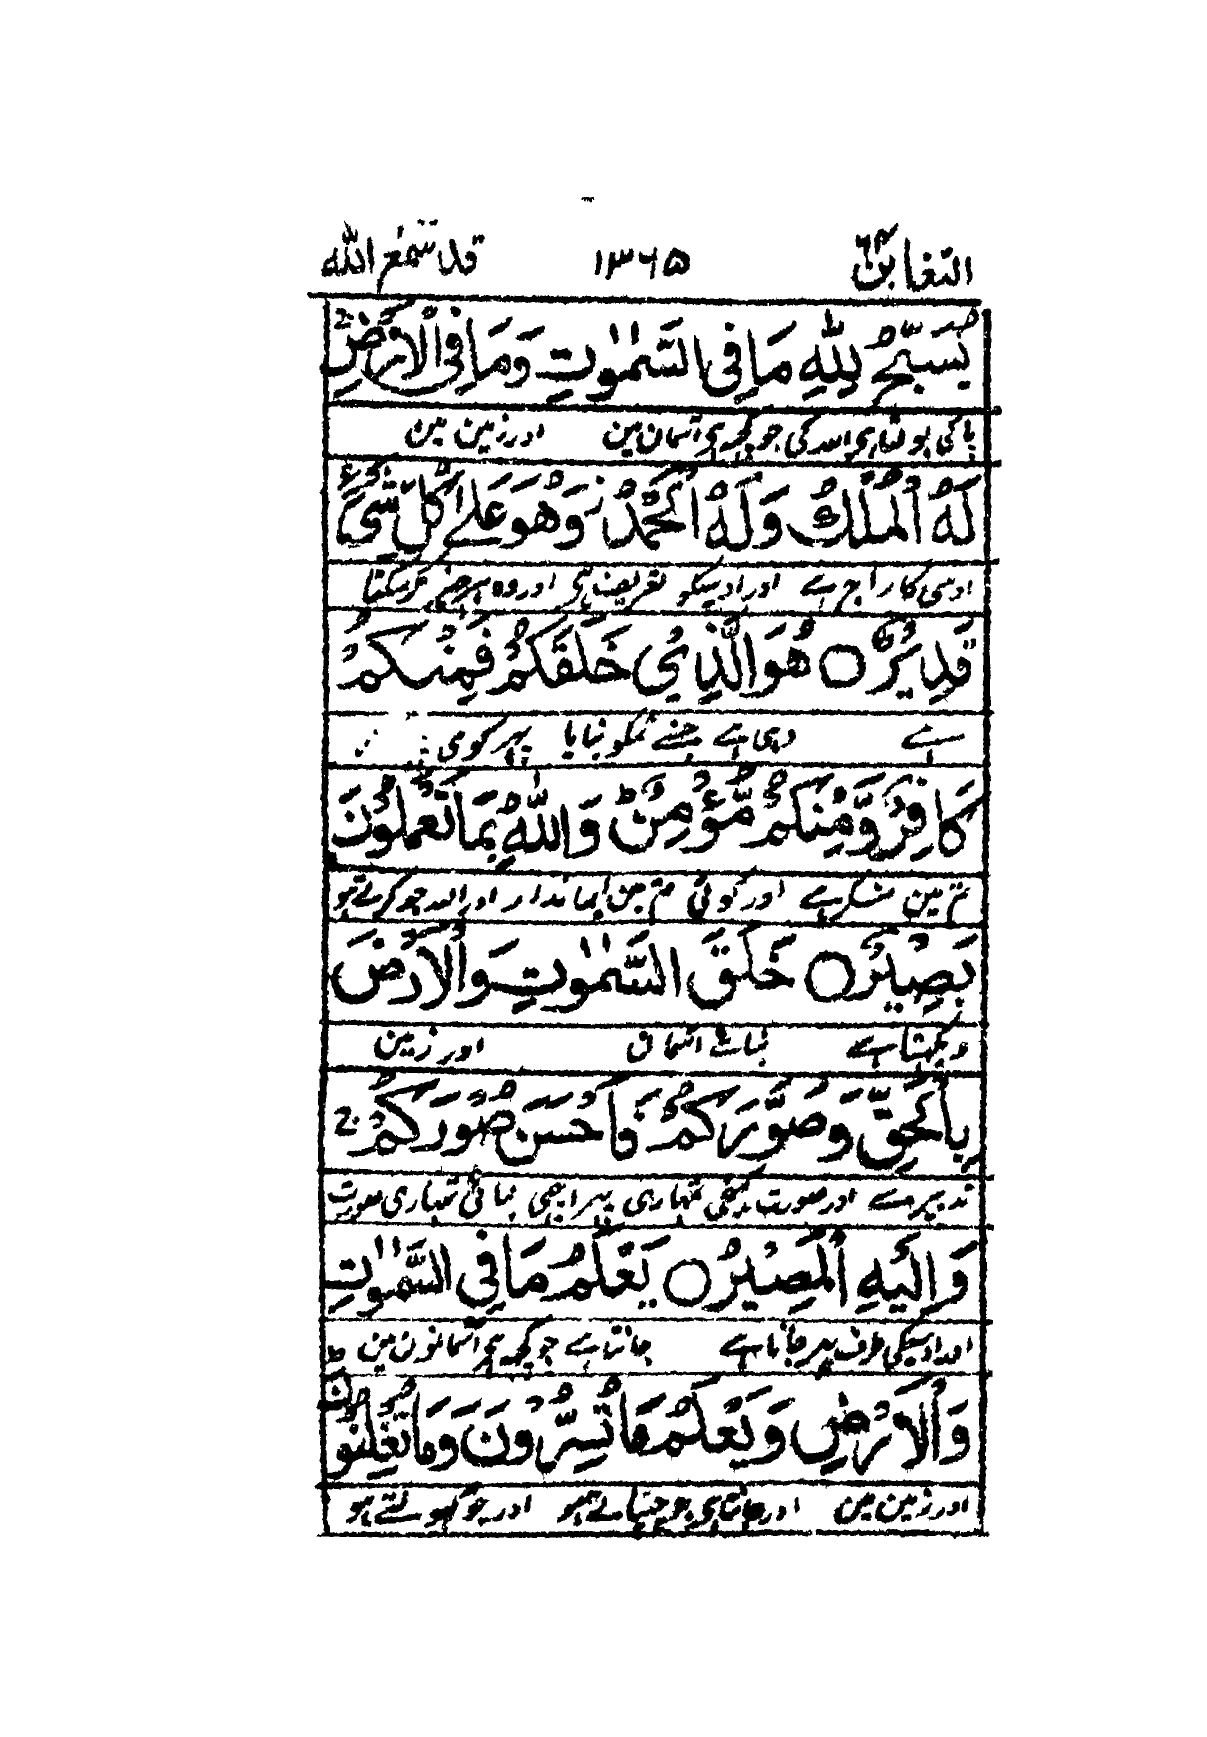 التغابن ٦٤ ١٣٦٥ قد سمع الله
يُسَبِّحُ لِلّٰهِ مَا فِي السَّمٰوٰتِ وَمَا فِي الْاَرْضِ ج
پاکی بولتا ہی اللہ کی جو کچھ ہی آسمان مین اور زمین مین
لَهُ الْمُلْكُ وَلَهُ الْحَمْدُ ز وَهُوَ عَلٰے كُلِّ شَيْءٍ
اوسی کا راج ہے اور اوسیکو تعریف ہی اور وہ ہر چیز کر سکتا
قَدِيْرٌ ○ هُوَ الَّذِيْ خَلَقَكُمْ فَمِنْكُمْ
ہے وہی ہے جسنے تمکو بنایا پہر کوی
كَافِرٌ وَّمِنْكُمْ مُّؤْمِنٌ ط وَاللّٰهُ بِمَا تَعْمَلُوْنَ
تم مین منکر ہے اور کوئی تم مین ایماندار اور اللہ جو کرتے ہو
بَصِيْرٌ ○ خَلَقَ السَّمٰوٰتِ وَالْاَرْضَ
دیکہتا ہے بنائے آسمان اور زمین
بِالْحَقِّ وَصَوَّرَكُمْ فَاَحْسَنَ صُوَرَكُمْ ج
تدبیر سے اور صورت کہینچی تمہاری پہر اچہی بنائی تمہاری صورت
وَاِلَيْهِ الْمَصِيْرُ ○ يَعْلَمُ مَا فِي السَّمٰوٰتِ
اور اوسیکی طرف پہر جانا ہے جانتا ہے جو کچھ ہی آسمانون مین
وَالْاَرْضِ وَيَعْلَمُ مَا تُسِرُّوْنَ وَمَا تُعْلِنُوْنَ ط
اور زمین مین اور جانتا ہی جو چہپاتے ہو اور جو کہولتے ہو